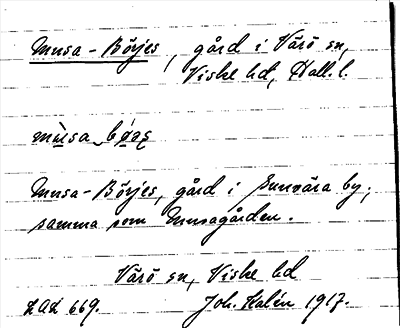 Musa-Börjes, gård i Värö sn,
Viske hd, Hall. l.
Musa-Börjes, gård i Sunvära by,
samma som Musagården.
Värö sn, Viske hd
LAL 669. Joh. Kalén 1917.